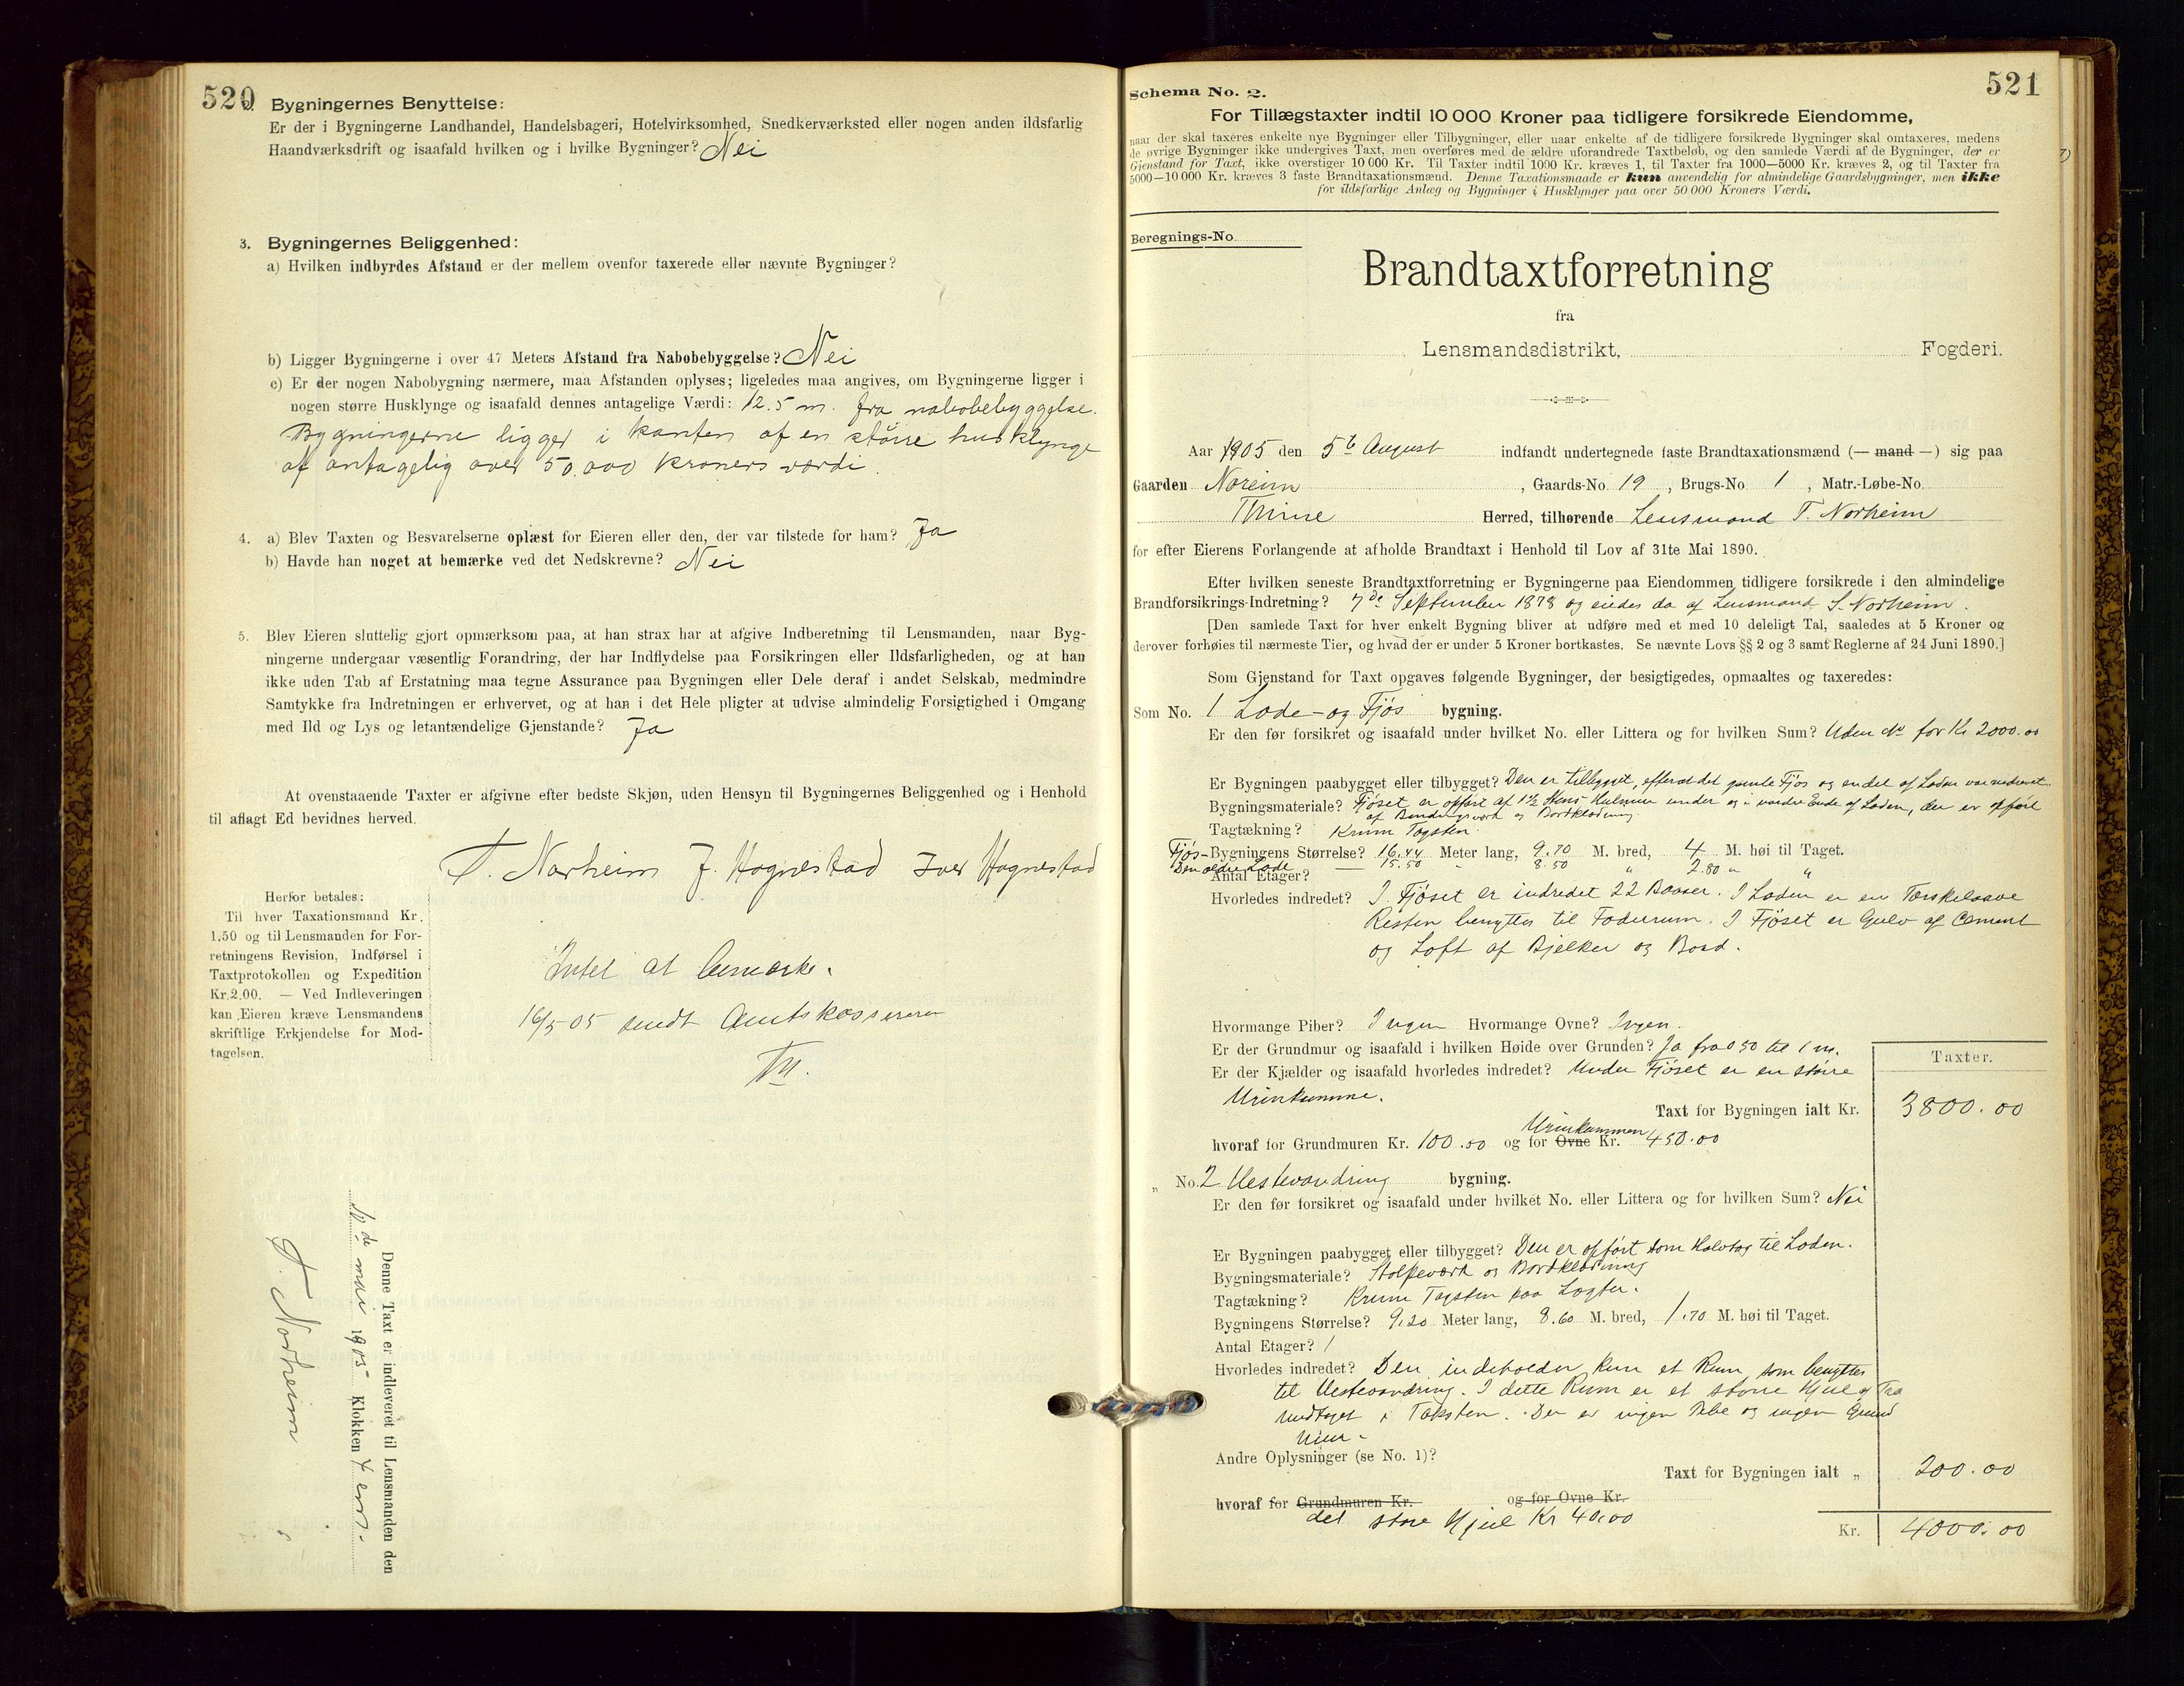 520
2. Bygningernes Benyttelse:
Er der i Bygningerne Landhandel, Handelsbageri, Hotelvirksomhed, Snedkerværksted eller nogen anden ildsfarlig
Haandværksdrift og isaafald hvilken og i hvilke Bygninger? Nei
3. Bygningernes Beliggenhed:
a) Hvilken indbyrdes Afstand er der mellem ovenfor taxerede eller nævnte Bygninger?
b) Ligger Bygningerne i over 47 Meters Afstand fra Nabobebyggelse? Nei
c) Er der nogen Nabobygning nærmere, maa Afstanden oplyses; ligeledes maa angives, om Bygningerne ligger i
nogen større Husklynge og isaafald dennes antagelige Værdi: 12.5 m. fra nabobebyggelse.
Bygningerne ligger i kanten af en større husklynge
af antagelig over 50.000 kroners værdi.
4. a) Blev Taxten og Besvarelserne oplæst for Eieren eller den, der var tilstede for ham? Ja
b) Havde han noget at bemærke ved det Nedskrevne? Nei
5. Blev Eieren sluttelig gjort opmærksom paa, at han strax har at afgive Indberetning til Lensmanden, naar Byg-
ningerne undergaar væsentlig Forandring, der har Indflydelse paa Forsikringen eller Ildsfarligheden, og at han
ikke uden Tab af Erstatning maa tegne Assurance paa Bygningen eller Dele deraf i andet Selskab, medmindre
Samtykke fra Indretningen er erhvervet, og at han i det Hele pligter at udvise almindelig Forsigtighed i Omgang
med Ild og Lys og letantændelige Gjenstande? Ja
At ovenstaaende Taxter er afgivne efter bedste Skjøn, uden Hensyn til Bygningernes Beliggenhed og i Henhold
til aflagt Ed bevidnes herved.
T. Norheim J. Hognestad Iver Hognestad
Herfor betales:
Til hver Taxationsmand Kr.
1.50 og til Lensmanden for For-
retningens Revision, Indførsel i
Taxtprotokollen og Expedition
Kr.2.00. — Ved Indleveringen
kan Eieren kræve Lensmandens
skriftlige Erkjendelse for Mod-
tagelsen.
Intet at bemærke.
16/5 05 sendt Amtskassereren
TN.
Denne Taxt er indleveret til Lensmanden den
mai 1905 Klokken 4 eft.
T. Norheim
521
Schema No. 2.
For Tillægstaxter indtil 10 000 Kroner paa tidligere forsikrede Eiendomme,
naar der skal taxeres enkelte nye Bygninger eller Tilbygninger, eller naar enkelte af de tidligere forsikrede Bygninger skal omtaxeres, medens
de øvrige Bygninger ikke undergives Taxt, men overføres med de ældre uforandrede Taxtbeløb, og den samlede Værdi af de Bygninger, der er
Gjenstand for Taxt, ikke overstiger 10 000 Kr. Til Taxter indtil 1000 Kr. kræves 1, til Taxter fra 1000—5000 Kr. kræves 2, og til Taxter fra
5000—10 000 Kr. kræves 3 faste Brandtaxationsmænd. Denne Taxationsmaade er kun anvendelig for almindelige Gaardsbygninger, men ikke
for ildsfarlige Anlæg og Bygninger i Husklynger paa over 50 000 Kroners Værdi.
Beregnings-No
Brandtaxtforretning
fra
Lensmandsdistrikt, Fogderi.
Aar 1905 den 5te August indfandt undertegnede faste Brandtaxationsmænd (— mand —) sig paa
Gaarden Noreim, Gaards-No. 19, Brugs-No. 1, Matr.-Løbe-No.
Thime Herred, tilhørende Lensmand T. Norheim
for efter Eierens Forlangende at afholde Brandtaxt i Henhold til Lov af 31te Mai 1890.
Efter hvilken seneste Brandtaxtforretning er Bygningerne paa Eiendommen tidligere forsikrede i den almindelige
Brandforsikrings-Indretning? 7de September 1878 og eiedes da af Lensmand S. Norheim.
[Den samlede Taxt for hver enkelt Bygning bliver at udføre med et med 10 deleligt Tal, saaledes at 5 Kroner og
derover forhøies til nærmeste Tier, og hvad der er under 5 Kroner bortkastes. Se nævnte Lovs §§ 2 og 3 samt Reglerne af 24 Juni 1890.]
Som Gjenstand for Taxt opgaves følgende Bygninger, der besigtigedes, opmaaltes og taxeredes:
Som No. 1 Lade- og Fjøs bygning.
Er den før forsikret og isaafald under hvilket No. eller Littera og for hvilken Sum? Uden No for Kr 2000.00
Er Bygningen paabygget eller tilbygget? Den er tilbygget, efterat det gamle Fjøs og endel af Laden var nedrevet
Bygningsmateriale? Fjøset er opført af 1½ Stens Hulmur under og i vestre Ende af Laden, der er opført
af Bindingsværk og Bordklædning
Tagtækning? Krum Tagsten.
Fjøs- Bygningens Størrelse? 16.44 Meter lang, 9.70 M. bred, 4 M. høi til Taget.
Den ældre Lade — 15.50 " 8.50 " 2.80 " "
Antal Etager?
Hvorledes indredet? I Fjøset er indredet 22 Baaser. I Laden er en Tærskelaave
Resten benyttes til Foderrum. I Fjøset er Gulv af Cement
og Loft af Bjelker og Bord.
Hvormange Piber? Ingen Hvormange Ovne? Ingen.
Er der Grundmur og isaafald i hvilken Høide over Grunden? Ja fra 0.50 til 1 m.
Er der Kjælder og isaafald hvorledes indredet? Under Fjøset er en større
Urinkumme.
Taxter.
Taxt for Bygningen ialt Kr. 3800.00
hvoraf for Grundmuren Kr. 100.00 og for Ovne Urinkummen Kr. 450.00
" No. 2 Hestevandring bygning.
Er den før forsikret og isaafald under hvilket No. eller Littera og for hvilken Sum? Nei
Er Bygningen paabygget eller tilbygget? Den er opført som Halvtag til Laden.
Bygningsmateriale? Stolpeværk og Bordklædning
Tagtækning? Krum Tagsten paa Lægter.
Bygningens Størrelse? 9.20 Meter lang, 8.60 M. bred, 1.70 M. høi til Taget.
Antal Etager? 1
Hvorledes indredet? Den indeholder kun et Rum som benyttes
til Hestevandring. I dette Rum er et større Hjul af Træ
medtaget i Taksten. Der er ingen Pibe og ingen Grund
mur.
Andre Oplysninger (se No. 1)?
Taxt for Bygningen ialt " 200.00
hvoraf for Grundmuren Kr. og for Ovne Kr.
det store Hjul Kr 40.00
Kr. 4000.00